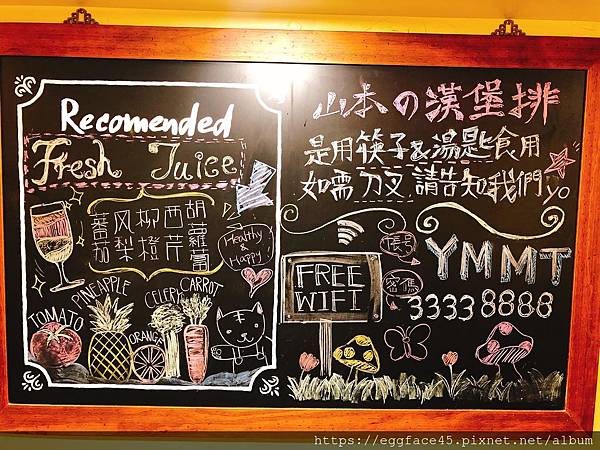 Recomended
Fresh Juice
蕃茄
凤梨
柳橙
西芹
胡蘿蔔
Healthy & Happy
TOMATO
PINEAPPLE
ORANGE
CELERY
CARROT
山本の漢堡排
是用筷子&湯匙食用
如需刀叉請告知我們yo
FREE
WIFI
帳号
YMMT
密馬
33338888
https://eggface45.pixnet.net/album